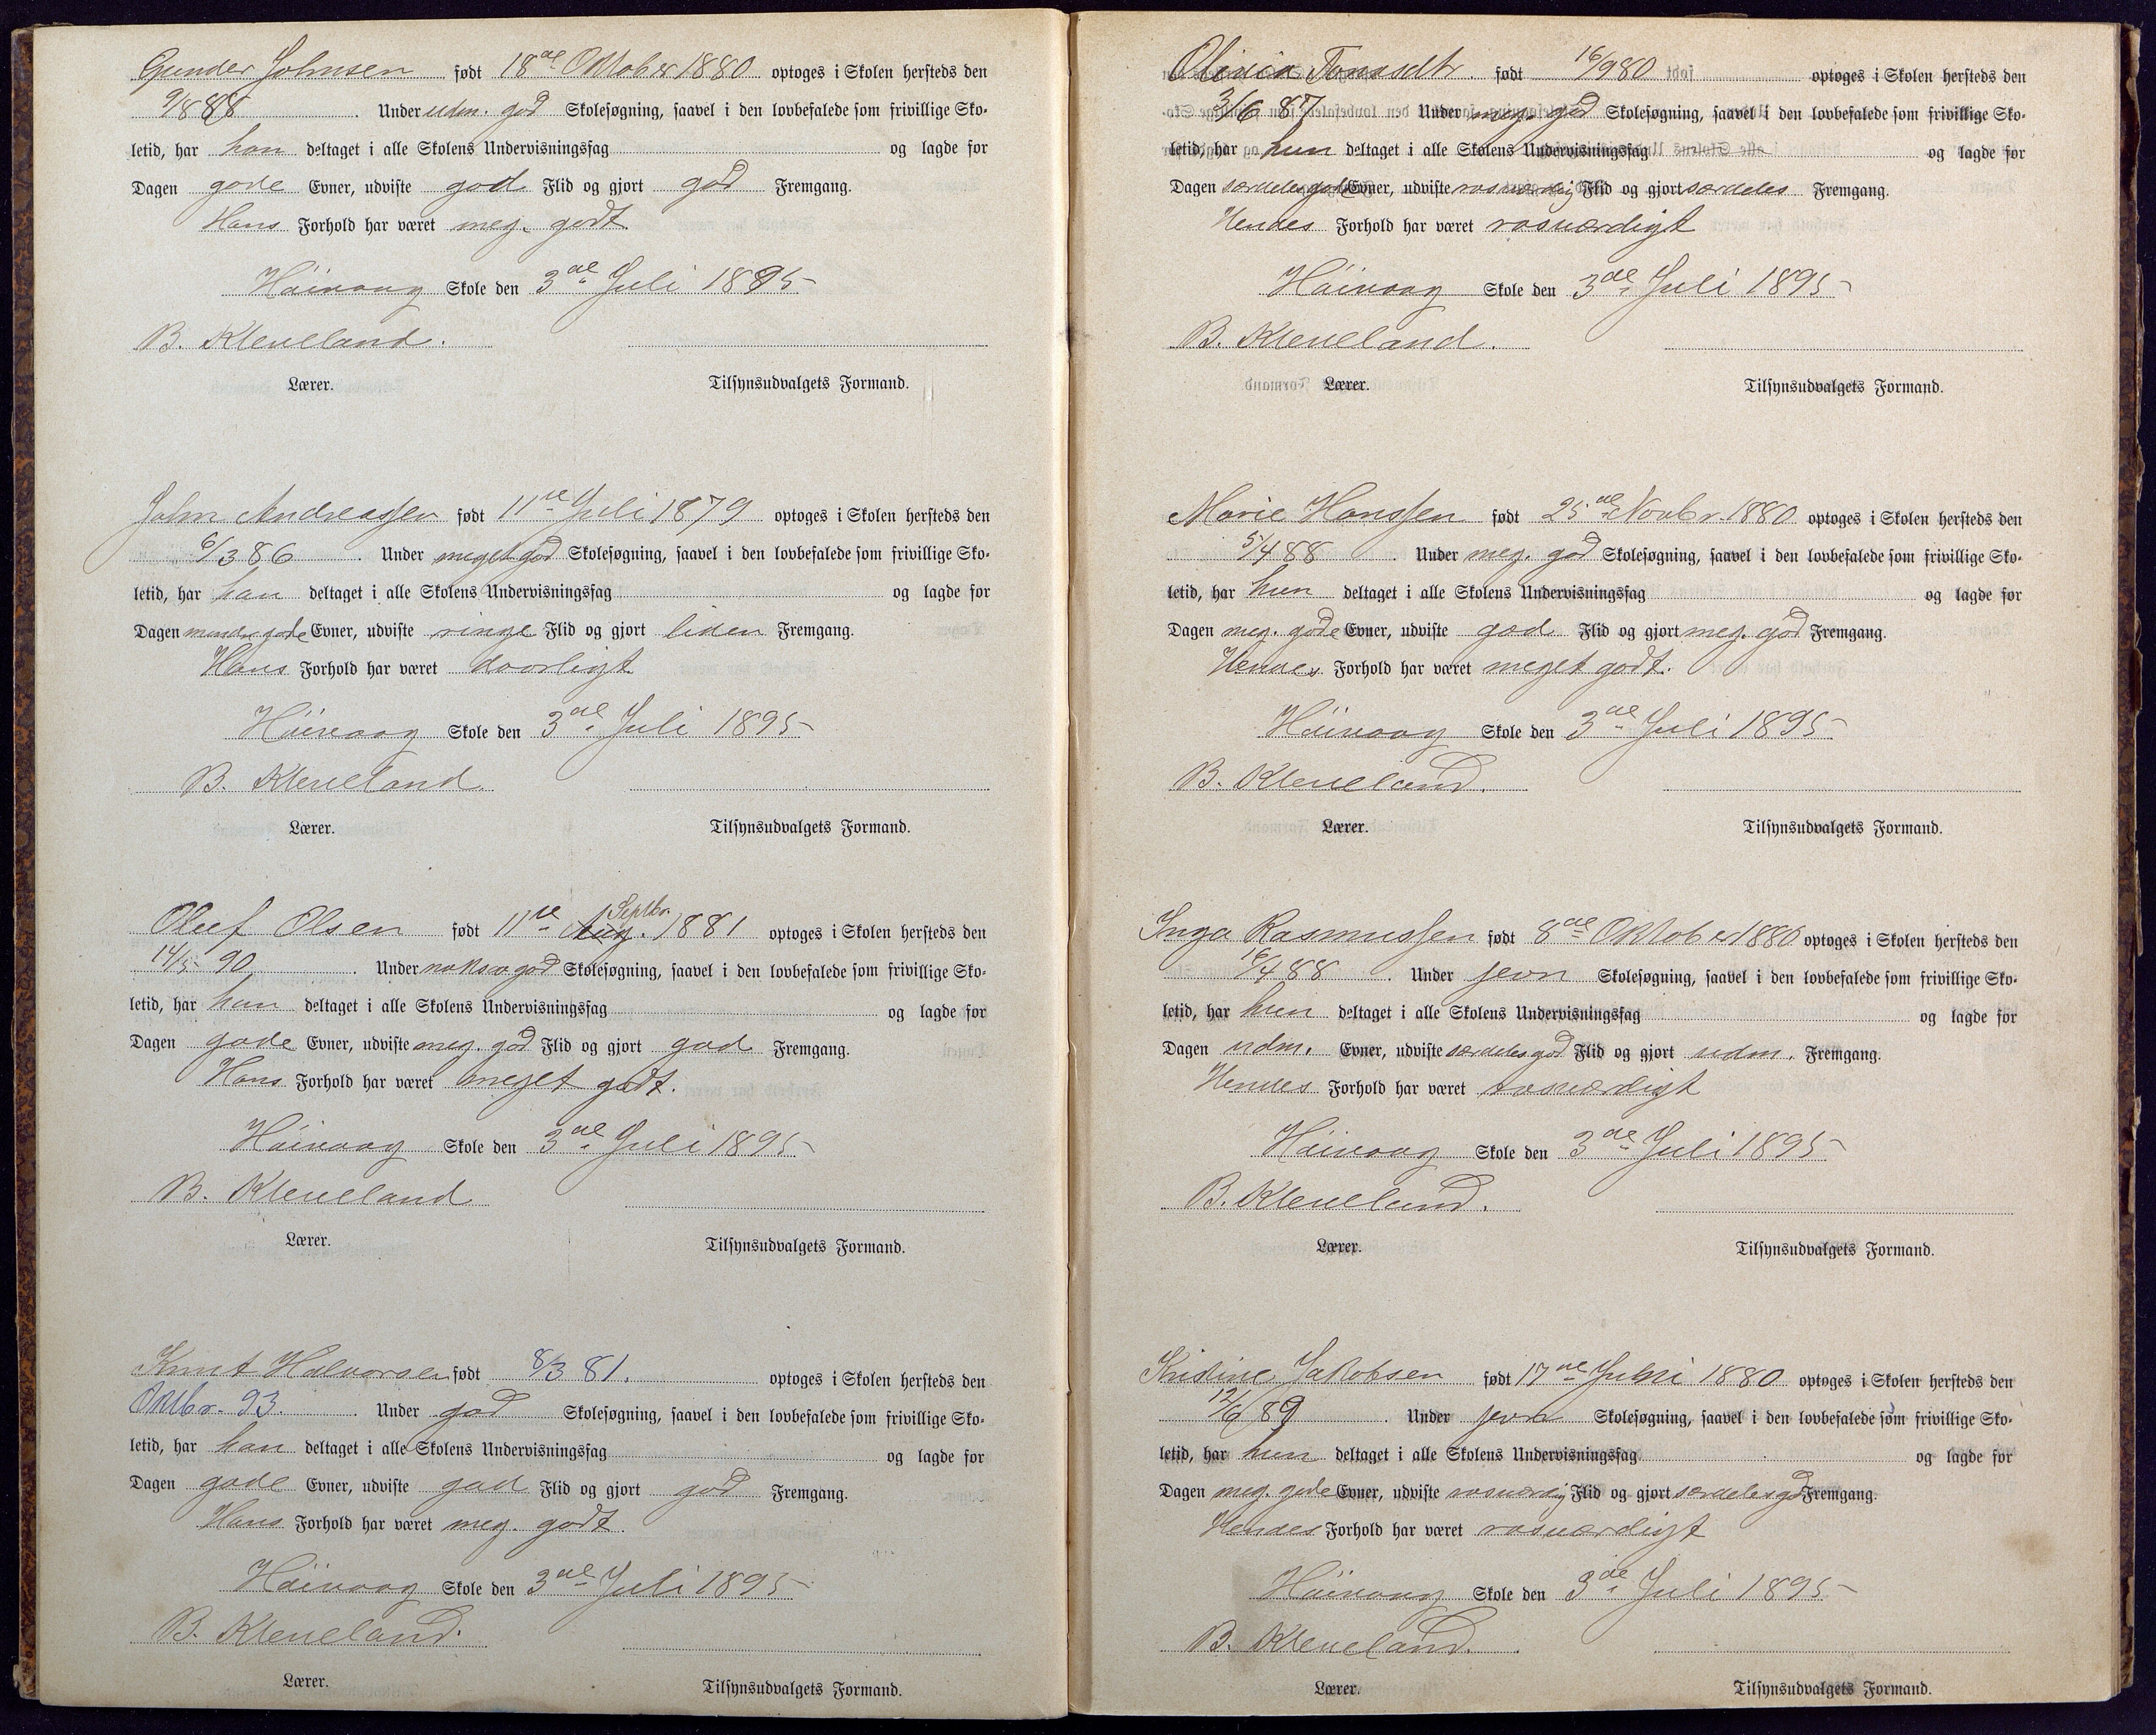 Gunder Johnsen født 18de Oktober 1880 optoges i Skolen hersteds den
9/8 88. Under udm. god Skolesøgning, saavel i den lovbefalede som frivillige Sko-
letid, har han deltaget i alle Skolens Undervisningsfag og lagde for
Dagen gode Evner, udviste god Flid og gjort god Fremgang.
Hans Forhold har været meg. godt.
Höivaag Skole den 3de Juli 1895
B. Kleveland.
Lærer. Tilsynsudvalgets Formand.
John Andreassen født 11te Juli 1879 optoges i Skolen hersteds den
6/3 86. Under meget god Skolesøgning, saavel i den lovbefalede som frivillige Sko-
letid, har han deltaget i alle Skolens Undervisningsfag og lagde for
Dagen mindre gode Evner, udviste ringe Flid og gjort liden Fremgang.
Hans Forhold har været daarligt
Höivaag Skole den 3de Juli 1895
B. Kleveland
Lærer. Tilsynsudvalgets Formand.
Septbr.
Oluf Olsen født 11te Aug. 1881 optoges i Skolen hersteds den
14/5 90. Under noksaa god Skolesøgning, saavel i den lovbefalede som frivillige Sko-
letid, har han deltaget i alle Skolens Undervisningsfag og lagde for
Dagen gode Evner, udviste meg. god Flid og gjort god Fremgang.
Hans Forhold har været meget godt.
Höivaag Skole den 3de Juli 1895
B. Kleveland
Lærer. Tilsynsudvalgets Formand.
Knut Halvorsen født 8/3 81. optoges i Skolen hersteds den
Oktbr. 93. Under god Skolesøgning, saavel i den lovbefalede som frivillige Sko-
letid, har han deltaget i alle Skolens Undervisningsfag og lagde for
Dagen gode Evner, udviste god Flid og gjort god Fremgang.
Hans Forhold har været meg. godt.
Höivaag Skole den 3de Juli 1895
B. Kleveland.
Lærer. Tilsynsudvalgets Formand.
Olivia Tomasdtr. født 16/9 80 optoges i Skolen hersteds den
3/6 87 Under meg. god Skolesøgning, saavel i den lovbefalede som frivillige Sko-
letid, har hun deltaget i alle Skolens Undervisningsfag og lagde for
Dagen særdeles gode Evner, udviste rosværdig Flid og gjort særdeles Fremgang.
Hendes Forhold har været rosværdigt
Höivaag Skole den 3de Juli 1895
B. Kleveland.
Lærer. Tilsynsudvalgets Formand.
Marie Hanssen født 25de Novbr. 1880 optoges i Skolen hersteds den
5/4 88. Under meg. god Skolesøgning, saavel i den lovbefalede som frivillige Sko-
letid, har hun deltaget i alle Skolens Undervisningsfag og lagde for
Dagen meg. gode Evner, udviste god Flid og gjort meg. god Fremgang.
Hendes Forhold har været meget godt.
Höivaag Skole den 3de Juli 1895
B. Kleveland.
Lærer. Tilsynsudvalgets Formand.
Inga Rasmussen født 8de Oktober 1880 optoges i Skolen hersteds den
16/4 88. Under jevn Skolesøgning, saavel i den lovbefalede som frivillige Sko-
letid, har hun deltaget i alle Skolens Undervisningsfag og lagde for
Dagen udm. Evner, udviste særdeles god Flid og gjort udm. Fremgang.
Hendes Forhold har været rosværdigt
Höivaag Skole den 3de Juli 1895
B. Kleveland.
Lærer. Tilsynsudvalgets Formand.
Kristine Jakobsen født 17de 1880 optoges i Skolen hersteds den
12/6 89. Under jevn Skolesøgning, saavel i den lovbefalede som frivillige Sko-
letid, har hun deltaget i alle Skolens Undervisningsfag og lagde for
Dagen meg. gode Evner, udviste rosværdig Flid og gjort særdeles god Fremgang.
Hendes Forhold har været rosværdigt
Höivaag Skole den 3de Juli 1895
B. Kleveland.
Lærer. Tilsynsudvalgets Formand.